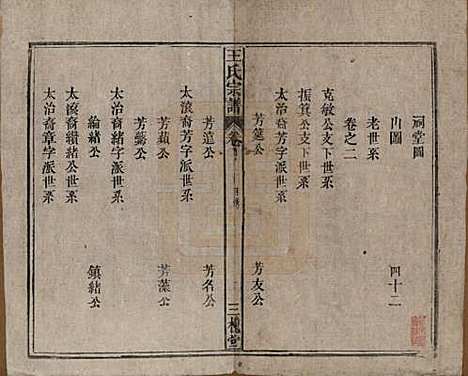 祠堂圖
山圖 四十二
老世系
卷之二
克敏公支下世系
振箕公支下世系
太治裔芳字派世系
芳筵公 芳友公
王氏宗譜 卷 三槐堂
芳遠公 芳名公
太滾裔芳字派世系
芳蘋公 芳藻公
芳懿公
太治裔緒字派世系
綸緒公 鎮緒公
太滾裔纘緒公世系
太治裔章字派世系